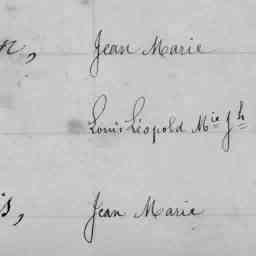 n, Jean Marie
Louis Léopold Mie Jh
is, Jean Marie